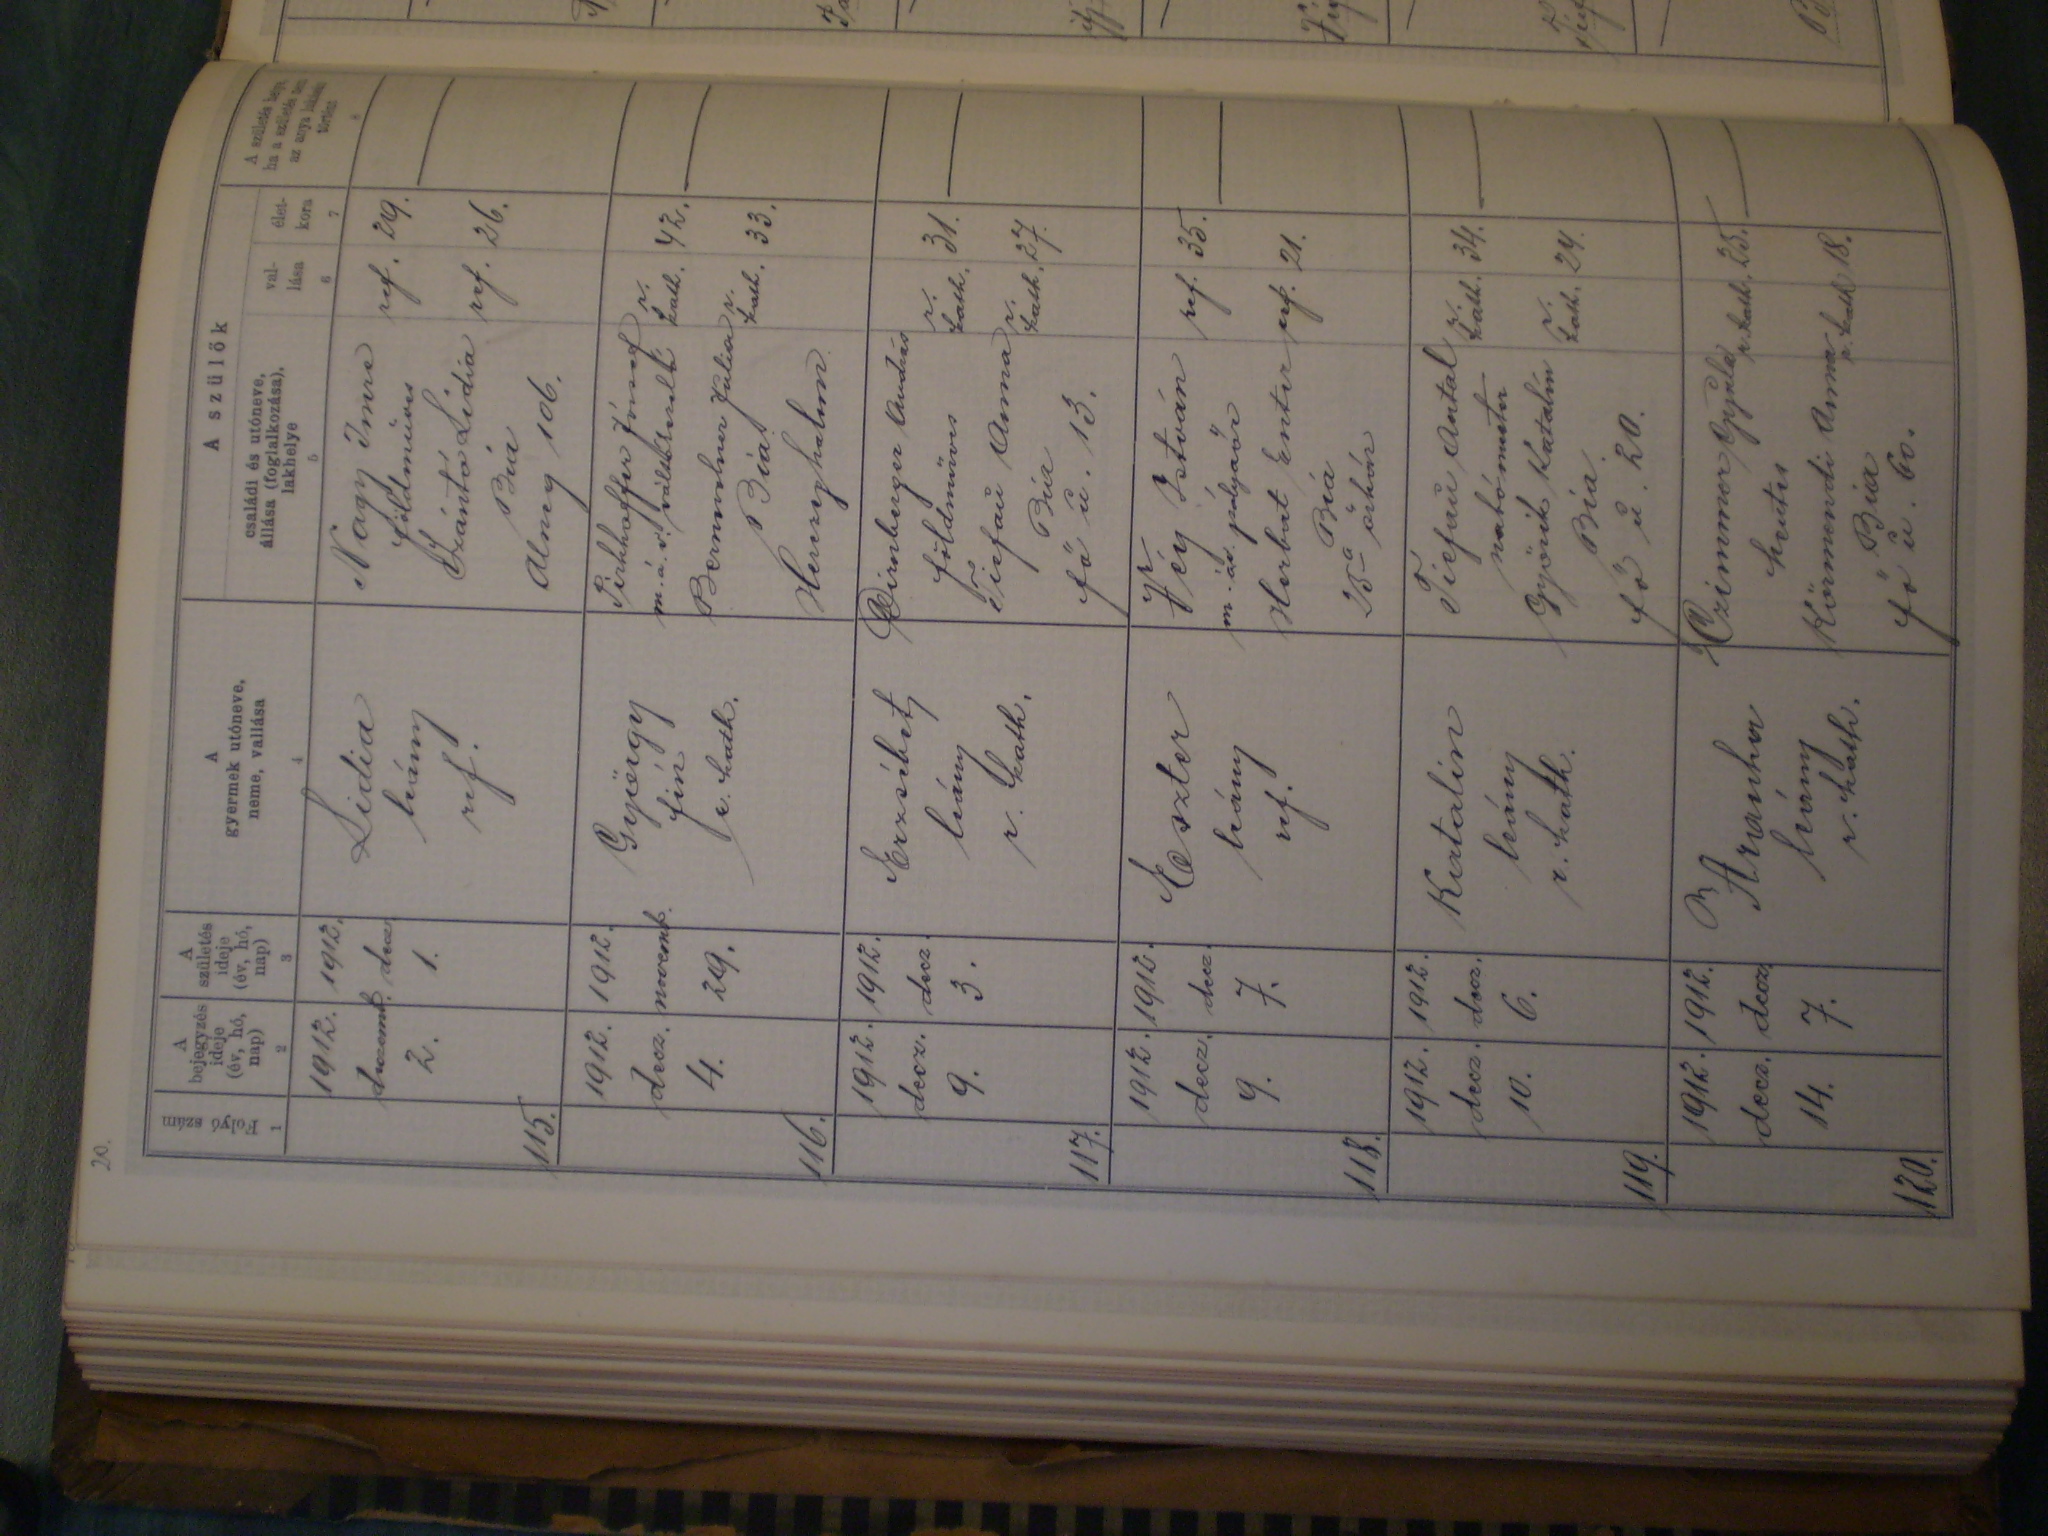 20.
Folyó szám
A bejegyzés ideje (év, hó, nap)
A születés ideje (év, hó, nap)
A gyermek utóneve, neme, vallása
A szülők
családi és utóneve, állása (foglalkozása), lakhelye
val-lása
élet-kora
A születés helye, ha a születés nem az anya lakhelyén történt
1 2 3 4 5 6 7 8
115.
1912. decemb. 2.
1912. decz. 1.
Lidia
leány
ref.
Nagy Imre ref. 29.
földmüves
Szántó Lidia ref. 26.
Bia
Alveg 106.
116.
1912. decz. 4.
1912. novemb. 29.
György
fiú
r. kath.
Pirkhoffer József r. kath. 42.
m. á. v.
Julia r. kath. 33.
Bia
Herczeghalom
117.
1912. decz. 9.
1912. decz. 3.
Erzsébet
leány
r. kath.
András r. kath. 31.
földmüves
Tiefau Anna r. kath. 27.
Bia
fő u. 13.
118.
1912. decz. 9.
1912. decz. 7.
Eszter
leány
ref.
Vég István ref. 35.
m. áv. pályaőr
Herbat Eszter ref. 21.
Bia
25 a őrház
119.
1912. decz. 10.
1912. decz. 6.
Katalin
leány
r. kath.
Tiefau Antal r. kath. 34.
szabómester
Győrik Katalin r. kath. 24.
Bia
fő u. 20.
120.
1912. decz. 14.
1912. decz. 7.
Aranka
leány
r. kath.
Czimmer Gyula r. kath. 25.
hentes
Körmendi Anna r. kath. 18.
Bia
fő u. 60.